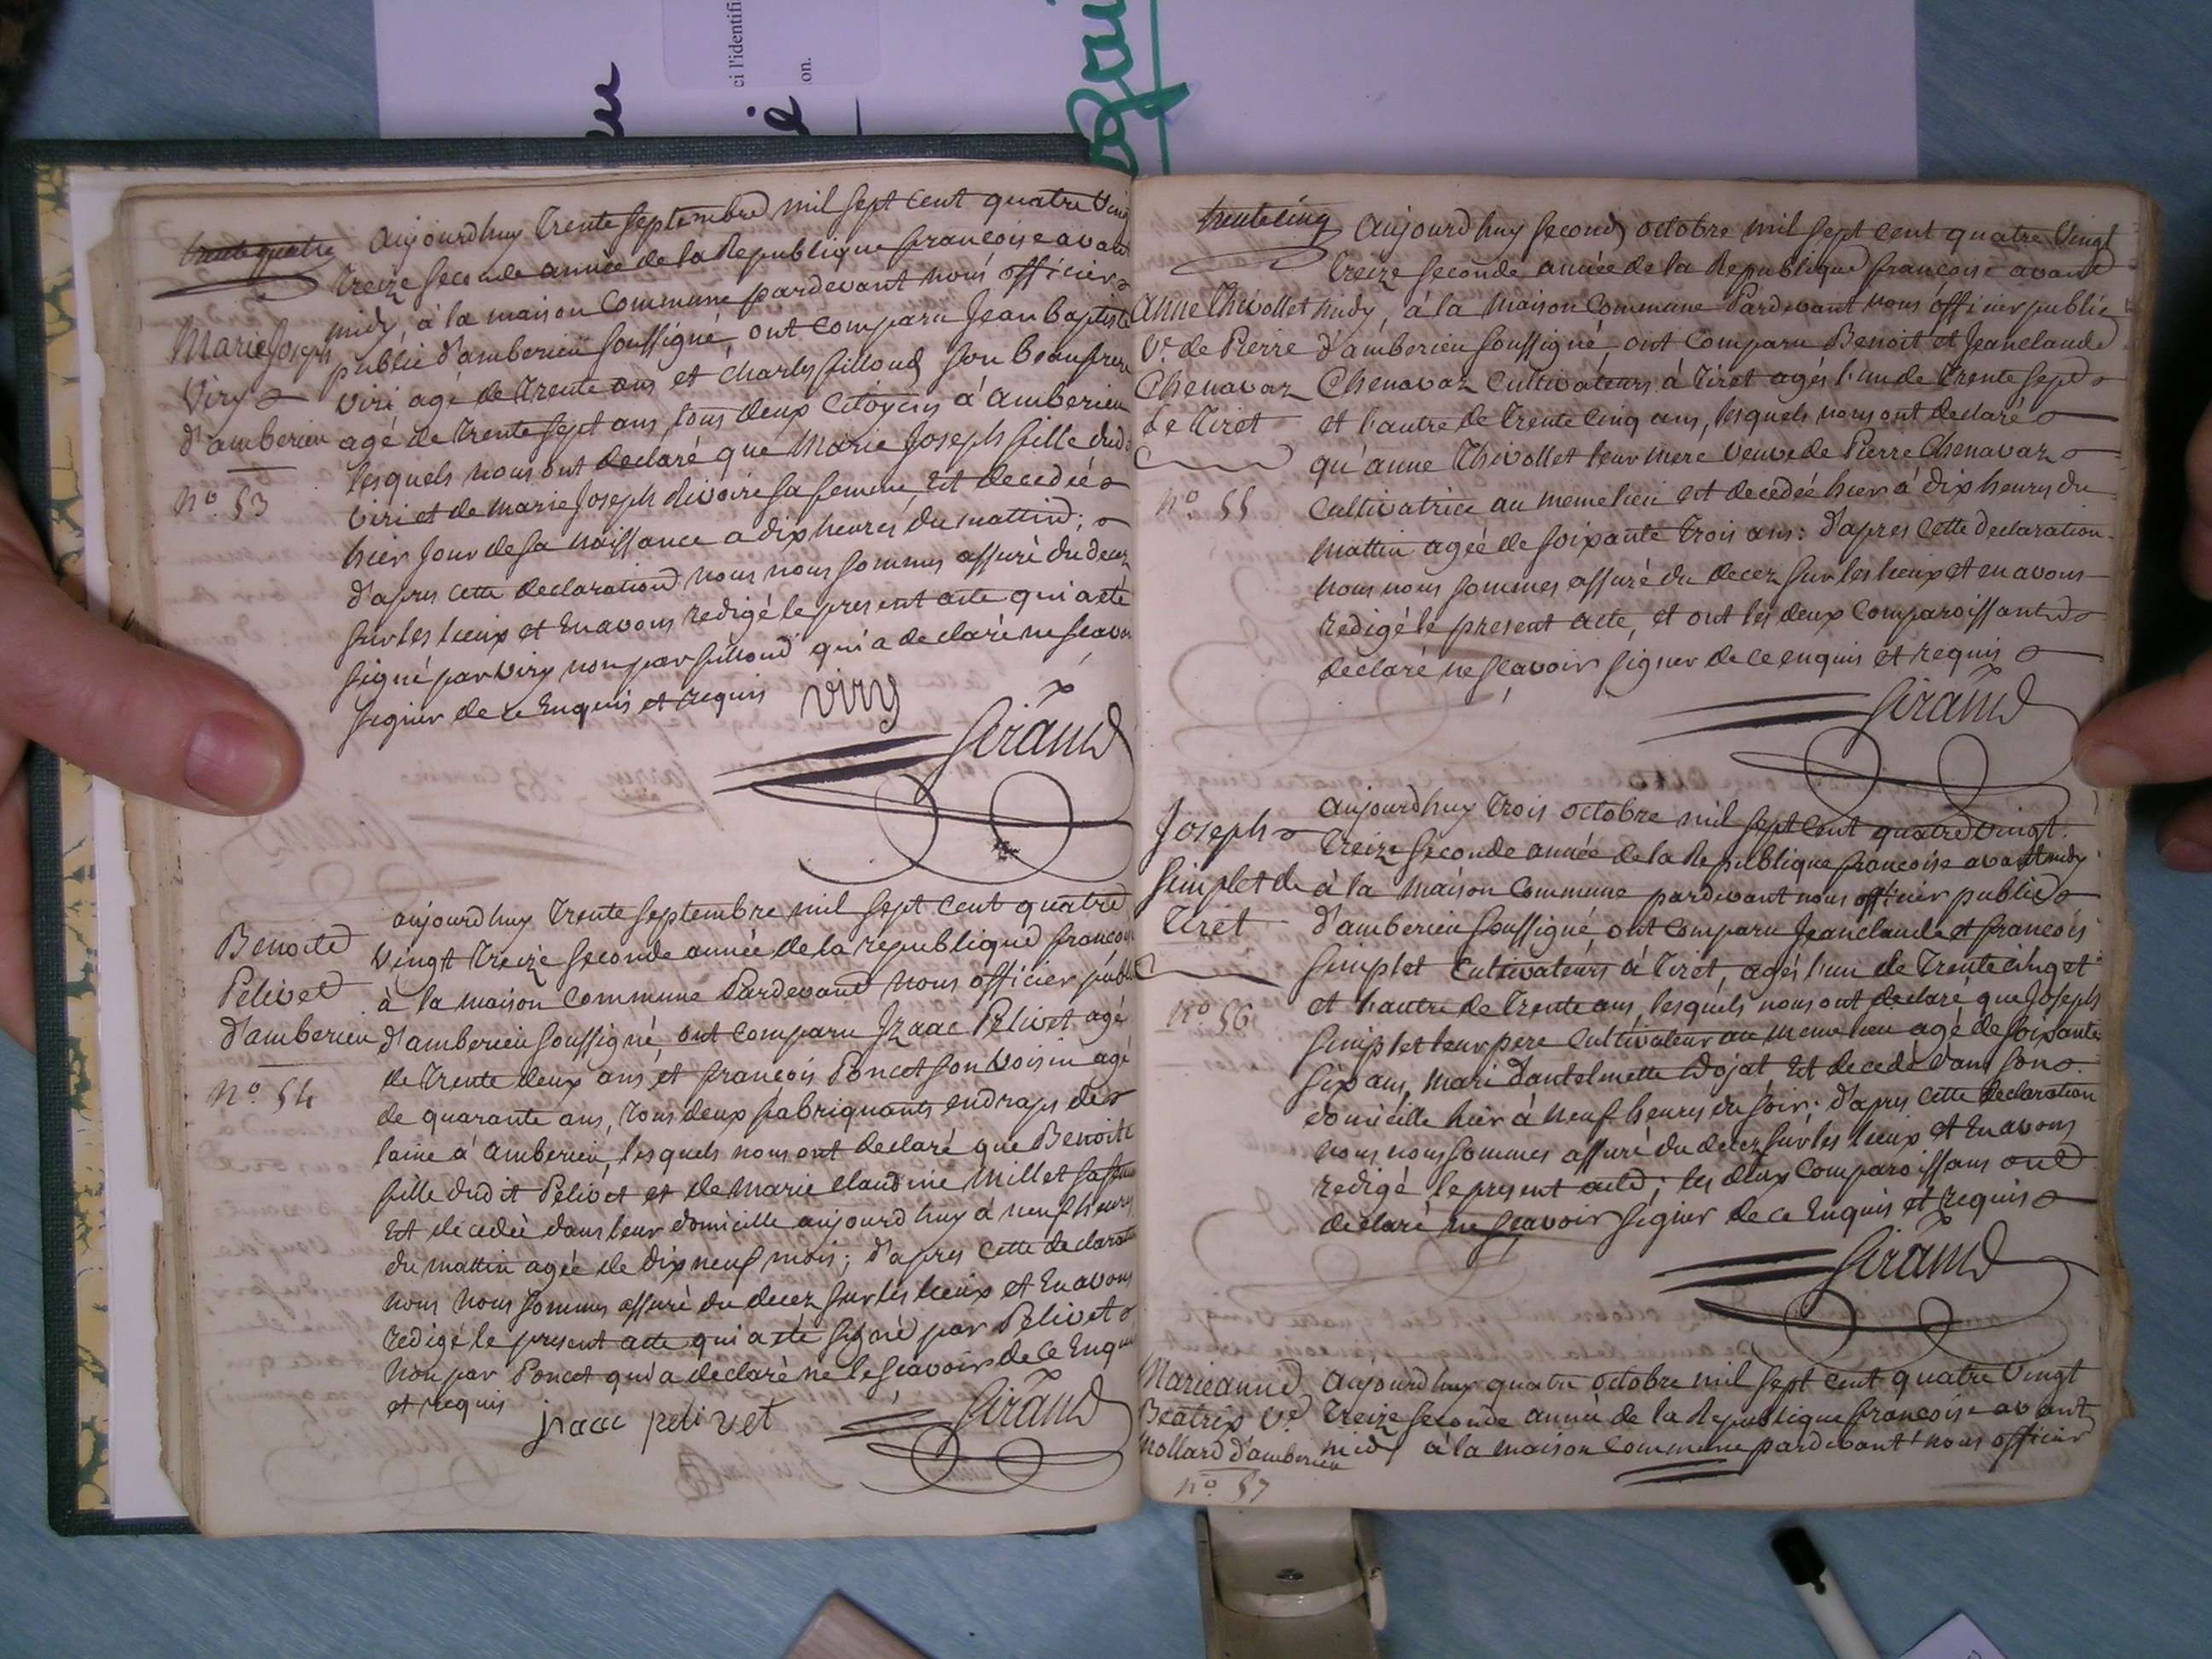 ci l'identifi
on.
trente quatre
aujourdhuy trente septembre mil sept cent quatre Vingt
treize seconde année de la Republique francoise avant
midy, à la maison Commune pardevant nous officier
public d'amberieu soussigné, ont comparu Jean baptiste
viri agé de trente ans et charles fillioud son beaufrere
agé de trente sept ans, tous deux Citoyens à Amberieu
lesquels nous ont declaré que Marie Joseph fille dud
viri et de marie Joseph divoire sa femme, Est decedée
hier Jour de sa naissance a dix heures du mattin;
d'apres cette declaration nous nous sommes assuré du decez
sur les lieux et En avons redigé le present acte qui a eté
signé par viry non par fillioud qui a declaré ne scavoir
signer de ce Enquis et requis
viry
Giraud
Marie Joseph
Viry
d'amberieu
n.º 53
aujourdhuy trente septembre mil sept cent quatre
Vingt treize seconde année de la republique francoise
à la maison Commune Pardevant nous officier public
d'amberieu soussigné, ont comparu Izaac Pelivet agé
de trente deux ans et francois Poncet son voisin agé
de quarante ans, tous deux fabriquants en draps de
laine à Amberieu, lesquels nous ont declaré que Benoite
fille dudit Pelivet et de Marie claudine Millet sa femme
Est decedée dans leur domicille aujourd huy à neuf heures
du mattin agée de dix neuf mois; d'apres cette declaration
nous nous sommes assuré du decez sur les lieux et En avons
redigé le present acte qui a eté signé par Pelivet
non par Poncet qui a declaré ne le scavoir de ce Enquis
et requis
isaac pelivet
Giraud
Benoite
Pelivet
d'amberieu
n.º 54
trente cinq
aujourdhuy second octobre mil sept cent quatre Vingt
treize seconde année de la Republique francoise avant
midy, à la Maison Commune Pardevant nous officier public
d'amberieu soussigné, ont comparu Benoit et Jeanclaude
Chenavaz Cultivateurs à Tiret agés l'un de trente sept
et l'autre de trente cinq ans, lesquels nous ont declaré
qu'anne Thivollet leur mere veuve de Pierre Chenavaz
Cultivatrice au meme lieu est decedée hier à dix heures du
mattin agée de soixante trois ans: d'apres cette declaration
nous nous sommes assuré du decez sur les lieux et en avons
redigé le present acte, et ont les deux comparoissants
declaré ne scavoir signer de ce enquis et requis
Giraud
Anne Thivollet
Ve. de Pierre
Chenavaz
de Tiret
n.º 55
aujourdhuy trois octobre mil sept cent quatre vingt
treize seconde année de la Republique francoise avant midy
à la maison Commune pardevant nous officier public
d'amberieu soussigné, ont comparu Jeanclaude et francois
simplet Cultivateurs à Tiret, agés l'un de trente cinq et
et l'autre de trente ans, lesquels nous ont declaré que Joseph
simplet leur pere Cultivateur au meme lieu agé de soixante
six ans, mari d'antelmette Dojat Est decedé dans son
domicille hier à neuf heures du soir: d'apres cette declaration
nous nous sommes assuré du decez sur les lieux et En avons
redigé le present acte; les deux Comparoissans ont
declaré ne scavoir signer de ce Enquis et requis
Giraud
Joseph
Simplet de
Tiret
n.º 56
Marieanne
Beatrix Ve.
Mollard d'amberieu
n.º 57
Aujourdhuy quatre octobre mil sept cent quatre Vingt
treize seconde année de la Republique francoise avant
midy à la maison Commune pardevant nous officier